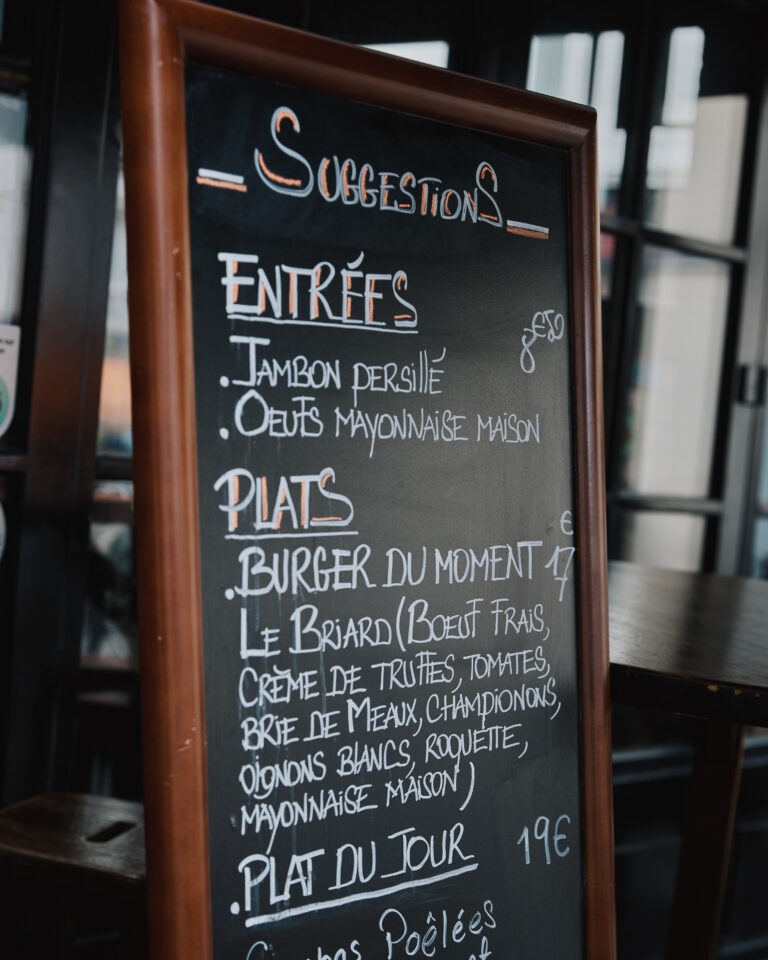 SUGGESTIONS
ENTRÉES
8€50
. JAMBON PERSILLÉ
. OEUFS MAYONNAISE MAISON
PLATS
. BURGER DU MOMENT 17€
LE BRIARD (BOEUF FRAIS,
CRÈME DE TRUFFES, TOMATES,
BRIE DE MEAUX, CHAMPIONONS,
OIGNONS BLANCS, ROQUETTE,
MAYONNAISE MAISON)
. PLAT DU JOUR 19€
Poêlées